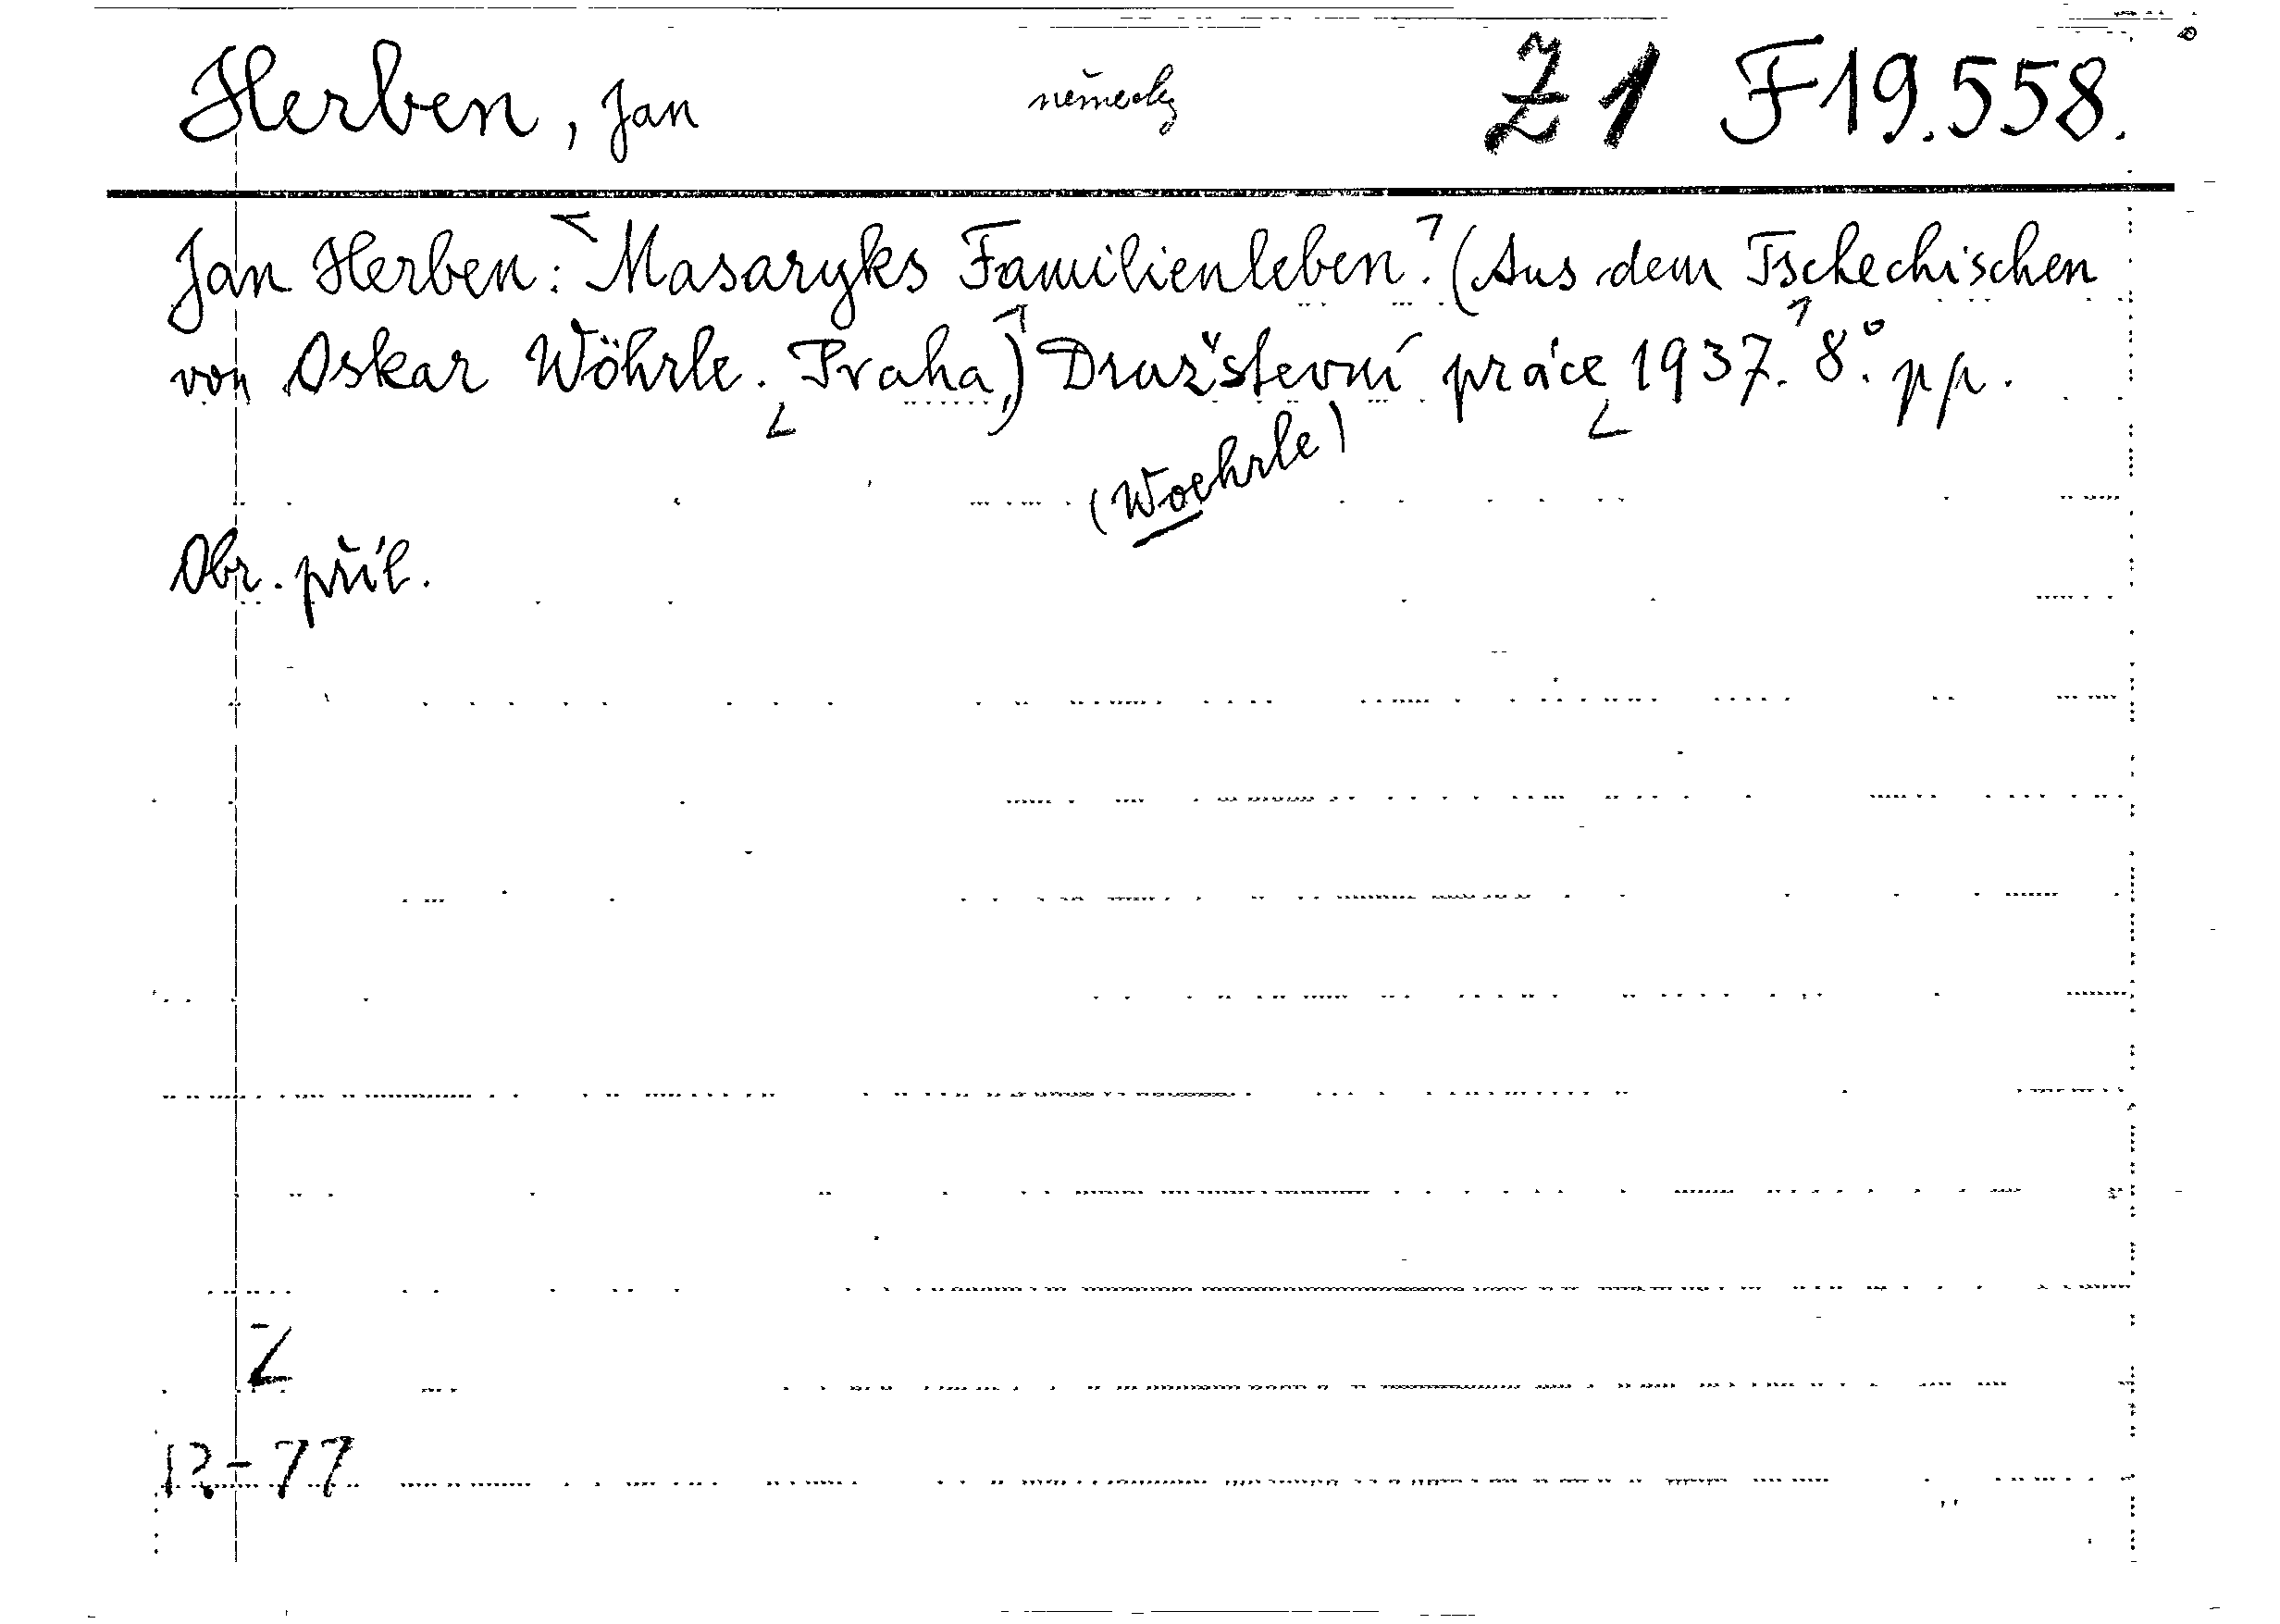 Herben, Jan německy Z 1 F 19.558.
Jan Herben: Masaryks Familienleben. (Aus dem Tschechischen
von Oskar Wöhrle. Praha,) Družstevní práce 1937. 8°. pp.
(Woehrle)
Obr. příl.
Z
12-77